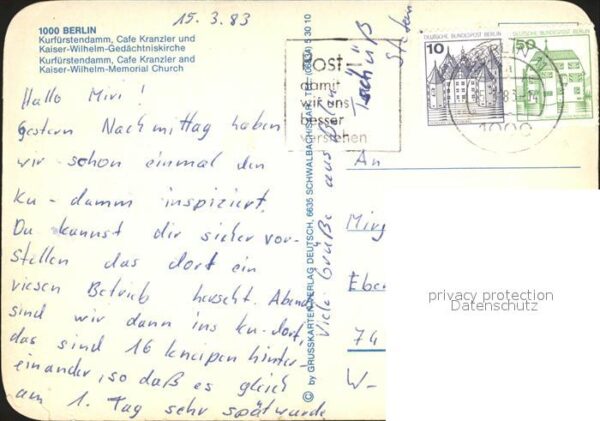 15.3.83
1000 BERLIN
Kurfürstendamm, Cafe Kranzler und
Kaiser-Wilhelm-Gedächtniskirche
Kurfürstendamm, Cafe Kranzler and
Kaiser-Wilhelm-Memorial Church
Hallo Miri!
gestern Nachmittag haben
wir schon einmal den
Ku-damm inspiziert.
Du kannst dir sicher vor-
stellen das dort ein
riesen Betrieb herscht. Abend
sind wir dann ins Ku-dorf,
das sind 16 kneipen hinter-
einander, so daß es gleich
am 1. Tag sehr spät wurde
Viele Grüße aus Bln
Tschüß
Stefan
© by GRUSSKARTEN-VERLAG DEUTSCH, 6635 SCHWALBACH/SAAR, TEL.
30 10
Post
damit
wir uns
besser
verstehen
10 DEUTSCHE BUNDESPOST BERLIN
50 DEUTSCHE BUNDESPOST BERLIN
1000
An
Eber
74
W-
privacy protection
Datenschutz